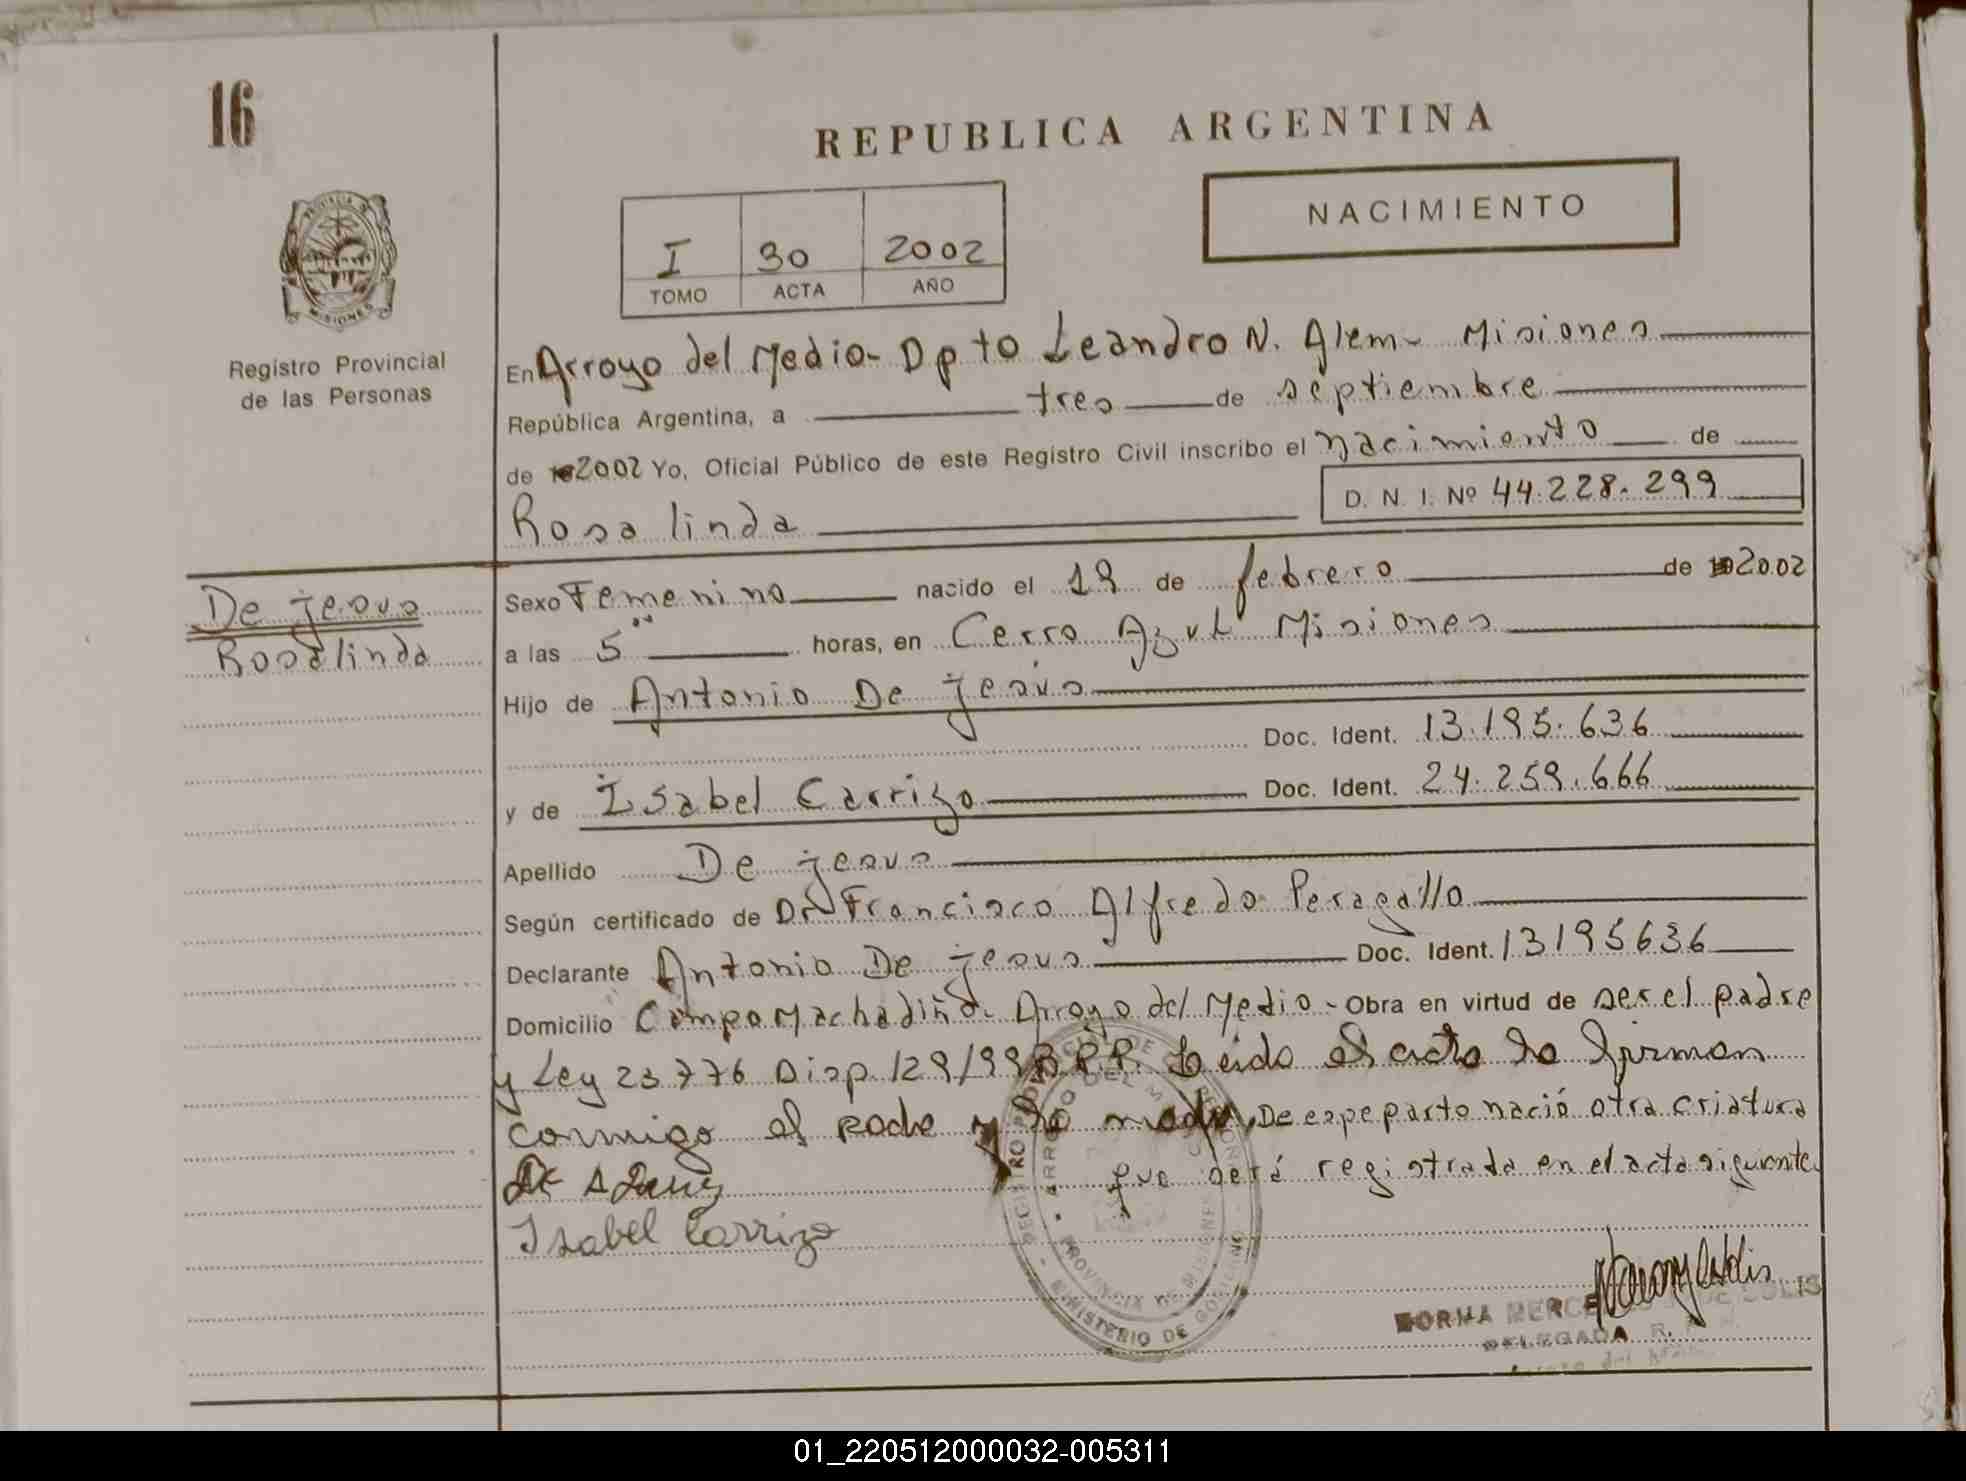 16
REPUBLICA ARGENTINA
NACIMIENTO
I 30 2002
TOMO ACTA AÑO
PROVINCIA DE
MISIONES
Registro Provincial
de las Personas
En Arroyo del Medio - Dpto Leandro N. Alem - Misiones
República Argentina, a tres de septiembre
de 2002 Yo, Oficial Público de este Registro Civil inscribo el nacimiento de
D. N. I. Nº 44.228.299
Rosalinda
De jesus
Rosalinda
Sexo Femenino nacido el 19 de febrero de 2002
a las 5 horas, en Cerro Azul Misiones
Hijo de Antonio De jesus
Doc. Ident. 13.195.636
y de Isabel Carrizo Doc. Ident. 24.259.666
Apellido De jesus
Según certificado de Dr Francisco Alfredo Peragallo
Declarante Antonio De jesus Doc. Ident. 13195636
Domicilio Campo Machadiño - Arroyo del Medio - Obra en virtud de ser el padre
y Ley 23776 Disp. 129/99 R.P.P. Leido el acta la firman
conmigo el padre y la madre, De ese parto nació otra criatura
que será registrada en el acta siguiente.
Isabel Carrizo
PROVINCIA DE MISIONES
MINISTERIO DE GOBIERNO
NORMA
DELEGADA R.
01_220512000032-005311